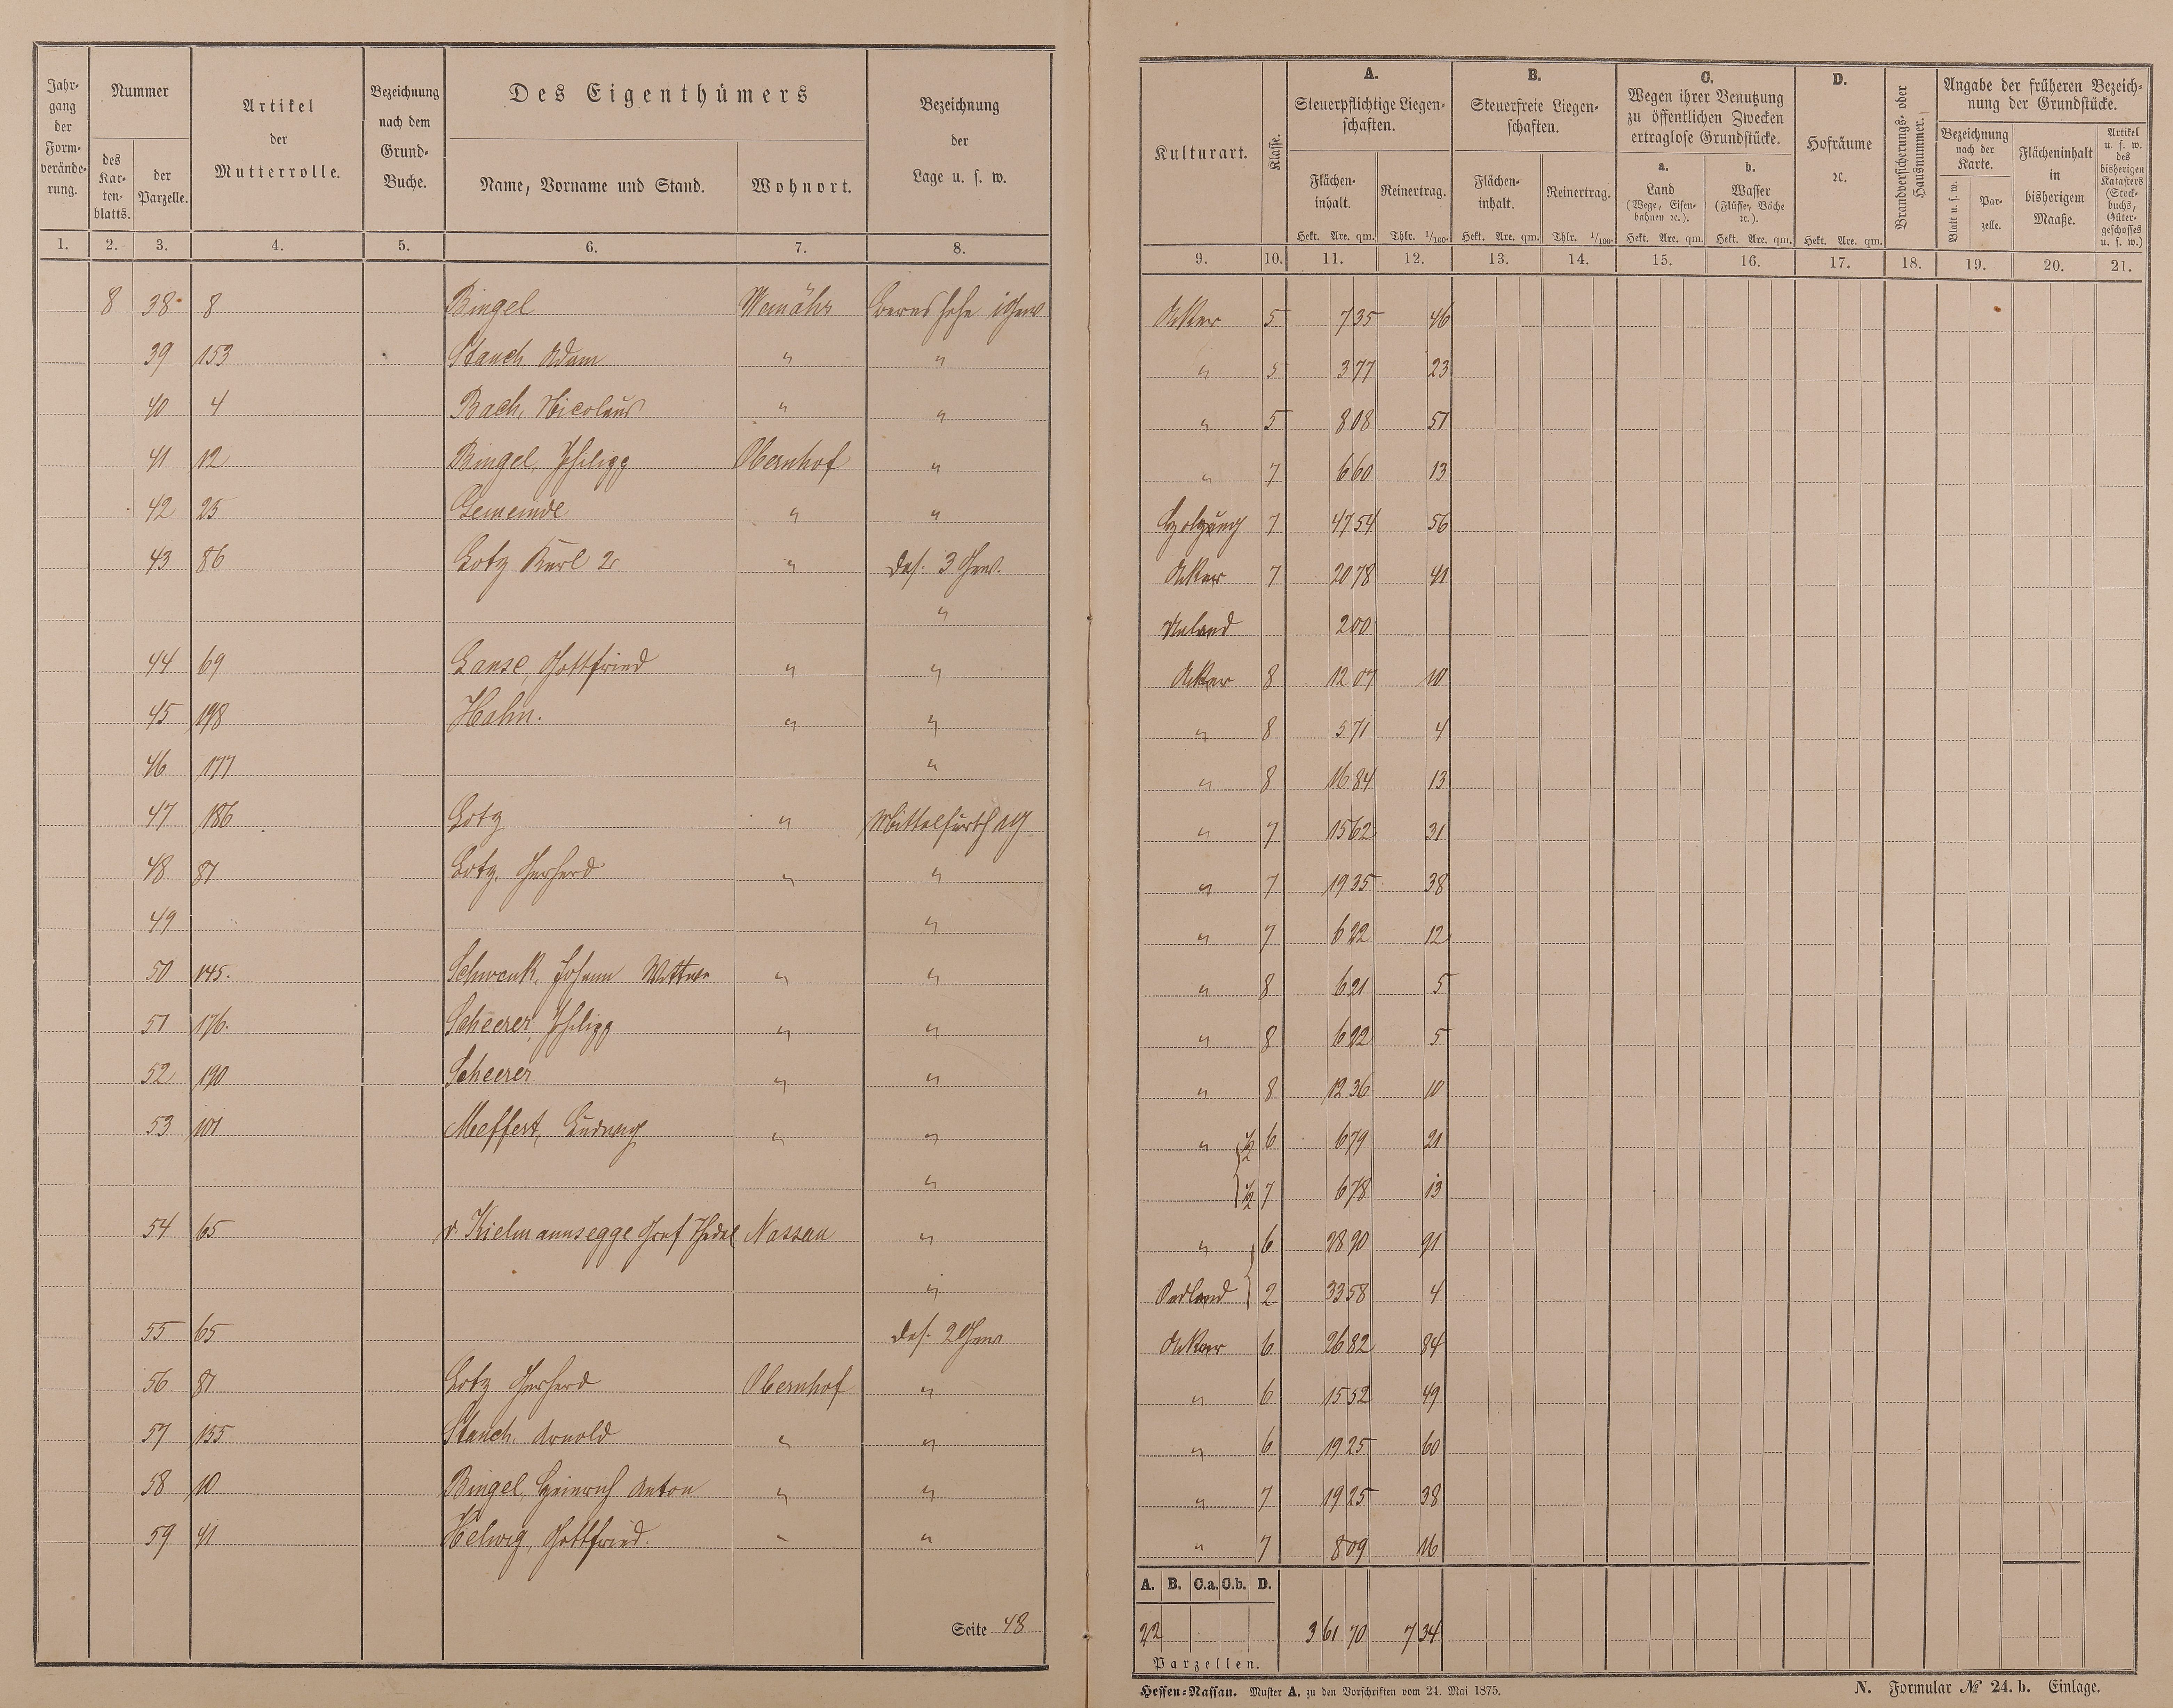 Jahrgang der Formveränderung.
Nummer
des Kartenblatts.
der Parzelle.
Artikel der Mutterrolle.
Bezeichnung nach dem Grund-Buche.
Des Eigenthümers
Name, Vorname und Stand.
Wohnort.
Bezeichnung der Lage u. s. w.
Kulturart.
Klasse.
A.
Steuerpflichtige Liegenschaften.
Flächeninhalt.
Reinertrag.
B.
Steuerfreie Liegenschaften.
Flächeninhalt.
Reinertrag.
C.
Wegen ihrer Benutzung zu öffentlichen Zwecken ertraglose Grundstücke.
a. Land (Wege, Eisenbahnen ꝛc.).
b. Wasser (Flüsse, Bäche ꝛc.).
D.
Hofräume ꝛc.
Brandversicherungs- oder Hausnummer.
Angabe der früheren Bezeichnung der Grundstücke.
Bezeichnung nach der Karte.
Blatt u. s. w.
Parzelle.
Flächeninhalt in bisherigem Maaße.
Artikel u. s. w. des bisherigen Katasters (Stockbuchs, Gütergeschosses u. s. w.)
Hekt. Are. qm. Thlr. 1/100. Hekt. Are. qm. Thlr. 1/100. Hekt. Are. qm. Hekt. Are. qm. Hekt. Are. qm.
1. 2. 3. 4. 5. 6. 7. 8. 9. 10. 11. 12. 13. 14. 15. 16. 17. 18. 19. 20. 21.
8 38 8 Bingel Weinähr Acker 5 7 35 46
39 153 Stauch Adam " " " 5 3 77 23
40 4 Bach, Nicolaus " " " 5 8 08 51
41 12 Bingel, Philipp Obernhof " " 7 6 60 13
42 25 Gemeinde " " Holzung 7 47 54 56
43 86 Lotz Karl 2r " das. 3 Gew. Acker 7 20 78 41
" Unland 2 00
44 69 Lanse, Gottfried " " Acker 8 12 07 10
45 198 Hahn. " " " 8 5 71 4
46 177 " " 8 16 84 13
47 186 Lotz " " 7 15 62 31
48 87 Lotz, Gerhard " " " 7 19 35 38
49 " " 7 6 22 12
50 145. Schwenk, Johann Wittwe " " " 8 6 21 5
51 176. Scheerer, Philipp " " " 8 6 22 5
52 190 Scheerer " " " 8 12 36 10
53 101 Meffert, Ludwig " " " 1/2 6 6 79 21
" 1/2 7 6 78 13
54 65 v. Kielmannsegge Graf Nassau " " 6 28 90 91
" Oedland 2 33 58 4
55 65 das. 2 Gew Acker 6 26 82 84
56 87 Lotz Gerhard Obernhof " " 6 15 52 49
57 155 Stauch, Arnold " " " 6 19 25 60
58 10 Bingel, Heinrich Anton " " " 7 19 25 38
59 41 Helwig, Gottfried. " " " 7 8 09 16
A. B. C.a. C.b. D.
22 3 61 70 7 34
Parzellen.
Seite 48
Hessen-Nassau. Muster A. zu den Vorschriften vom 24. Mai 1875.
N. Formular № 24. b. Einlage.